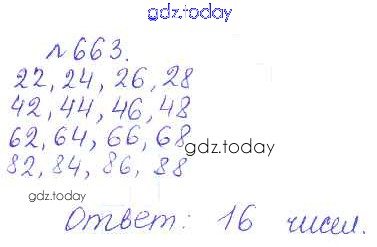 gdz.today
№663.
22, 24, 26, 28
42, 44, 46, 48
62, 64, 66, 68
gdz.today
82, 84, 86, 88
gdz.today
Ответ: 16 чисел.